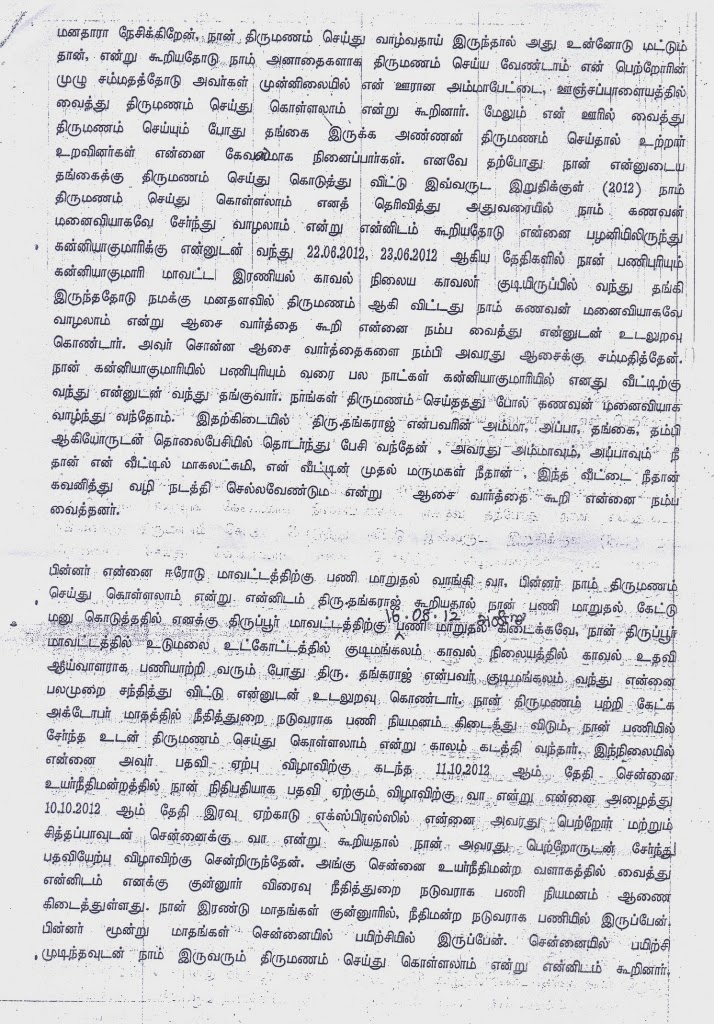 மனதாரா நேசிக்கிறேன், நான் திருமணம் செய்து வாழ்வதாய் இருந்தால் அது உன்னோடு மட்டும்
தான், என்று கூறியதோடு நாம் அனாதைகளாக திருமணம் செய்ய வேண்டாம் என் பெற்றோரின்
முழு சம்மதத்தோடு அவர்கள் முன்னிலையில் என் ஊரான அம்மாபேட்டை, ஊஞ்சப்பாளையத்தில்
வைத்து திருமணம் செய்து கொள்ளலாம் என்று கூறினார். மேலும் என் ஊரில் வைத்து
திருமணம் செய்யும் போது தங்கை இருக்க அண்ணன் திருமணம் செய்தால் உற்றார்
உறவினர்கள் என்னை கேவலமாக நினைப்பார்கள். எனவே தற்போது நான் என்னுடைய
தங்கைக்கு திருமணம் செய்து கொடுத்து விட்டு இவ்வருட இறுதிக்குள் (2012) நாம்
திருமணம் செய்து கொள்ளலாம் எனத் தெரிவித்து அதுவரையில் நாம் கணவன்
மனைவியாகவே சேர்ந்து வாழலாம் என்று என்னிடம் கூறியதோடு என்னை பழனியிலிருந்து
கன்னியாகுமாரிக்கு என்னுடன் வந்து 22.06.2012, 23.06.2012 ஆகிய தேதிகளில் நான் பணிபுரியும்
கன்னியாகுமாரி மாவட்ட இரணியல் காவல் நிலைய காவலர் குடியிருப்பில் வந்து தங்கி
இருந்ததோடு நமக்கு மனதளவில் திருமணம் ஆகி விட்டது நாம் கணவன் மனைவியாகவே
வாழலாம் என்று ஆசை வார்த்தை கூறி என்னை நம்ப வைத்து என்னுடன் உடலுறவு
கொண்டார். அவர் சொன்ன ஆசை வார்த்தைகளை நம்பி அவரது ஆசைக்கு சம்மதித்தேன்.
நான் கன்னியாகுமாரியில் பணிபுரியும் வரை பல நாட்கள் கன்னியாகுமாரியில் எனது வீட்டிற்கு
வந்து என்னுடன் வந்து தங்குவார். நாங்கள் திருமணம் செய்ததது போல் கணவன் மனைவியாக
வாழ்ந்து வந்தோம். இதற்கிடையில் திரு.தங்கராஜ் என்பவரின் அம்மா, அப்பா, தங்கை, தம்பி
ஆகியோருடன் தொலைபேசியில் தொடர்ந்து பேசி வந்தேன் , அவரது அம்மாவும், அப்பாவும் நீ
தான் என் வீட்டில் மாகலட்சுமி, என் வீட்டின் முதல் மருமகள் நீதான் , இந்த வீட்டை நீதான்
கவனித்து வழி நடத்தி செல்லவேண்டும என்று ஆசை வார்த்தை கூறி என்னை நம்ப
வைத்தனர்.
பின்னர் என்னை ஈரோடு மாவட்டத்திற்கு பணி மாறுதல் வாங்கி வா, பின்னர் நாம் திருமணம்
செய்து கொள்ளலாம் என்று என்னிடம் திரு.தங்கராஜ் கூறியதால் நான் பணி மாறுதல் கேட்டு
16.08.12 அன்று
மனு கொடுத்ததில் எனக்கு திருப்பூர் மாவட்டத்திற்கு பணி மாறுதல் கிடைக்கவே, நான் திருப்பூர்
மாவட்டத்தில் உடுமலை உட்கோட்டத்தில் குடிமங்கலம் காவல் நிலையத்தில் காவல் உதவி
ஆய்வாளராக பணியாற்றி வரும் போது திரு. தங்கராஜ் என்பவர் குடிமங்கலம் வந்து என்னை
பலமுறை சந்தித்து விட்டு என்னுடன் உடலுறவு கொண்டார். நான் திருமணம் பற்றி கேட்க
அக்டோபர் மாதத்தில் நீதித்துறை நடுவராக பணி நியமனம் கிடைத்து விடும், நான் பணியில்
சேர்ந்த உடன் திருமணம் செய்து கொள்ளலாம் என்று காலம் கடத்தி வந்தார். இந்நிலையில்
என்னை அவர் பதவி ஏற்பு விழாவிற்கு கடந்த 11.10.2012 ஆம் தேதி சென்னை
உயர்நீதிமன்றத்தில் நான் நிதிபதியாக பதவி ஏற்கும் விழாவிற்கு வா என்று என்னை அழைத்து
10.10.2012 ஆம் தேதி இரவு ஏற்காடு எக்ஸ்பிரஸ்ஸில் என்னை அவரது பெற்றோர் மற்றும்
சித்தப்பாவுடன் சென்னைக்கு வா என்று கூறியதால் நான் அவரது பெற்றோருடன் சேர்ந்து
பதவியேற்பு விழாவிற்கு சென்றிருந்தேன். அங்கு சென்னை உயர்நீதிமன்ற வளாகத்தில் வைத்து
என்னிடம் எனக்கு குன்னூர் விரைவு நீதித்துறை நடுவராக பணி நியமனம் ஆணை
கிடைத்துள்ளது. நான் இரண்டு மாதங்கள் குன்னூரில், நீதிமன்ற நடுவராக பணியில் இருப்பேன்.
பின்னர் மூன்று மாதங்கள் சென்னையில் பயிற்சியில் இருப்பேன். சென்னையில் பயிற்சி
முடிந்தவுடன் நாம் இருவரும் திருமணம் செய்து கொள்ளலாம் என்று என்னிடம் கூறினார்.